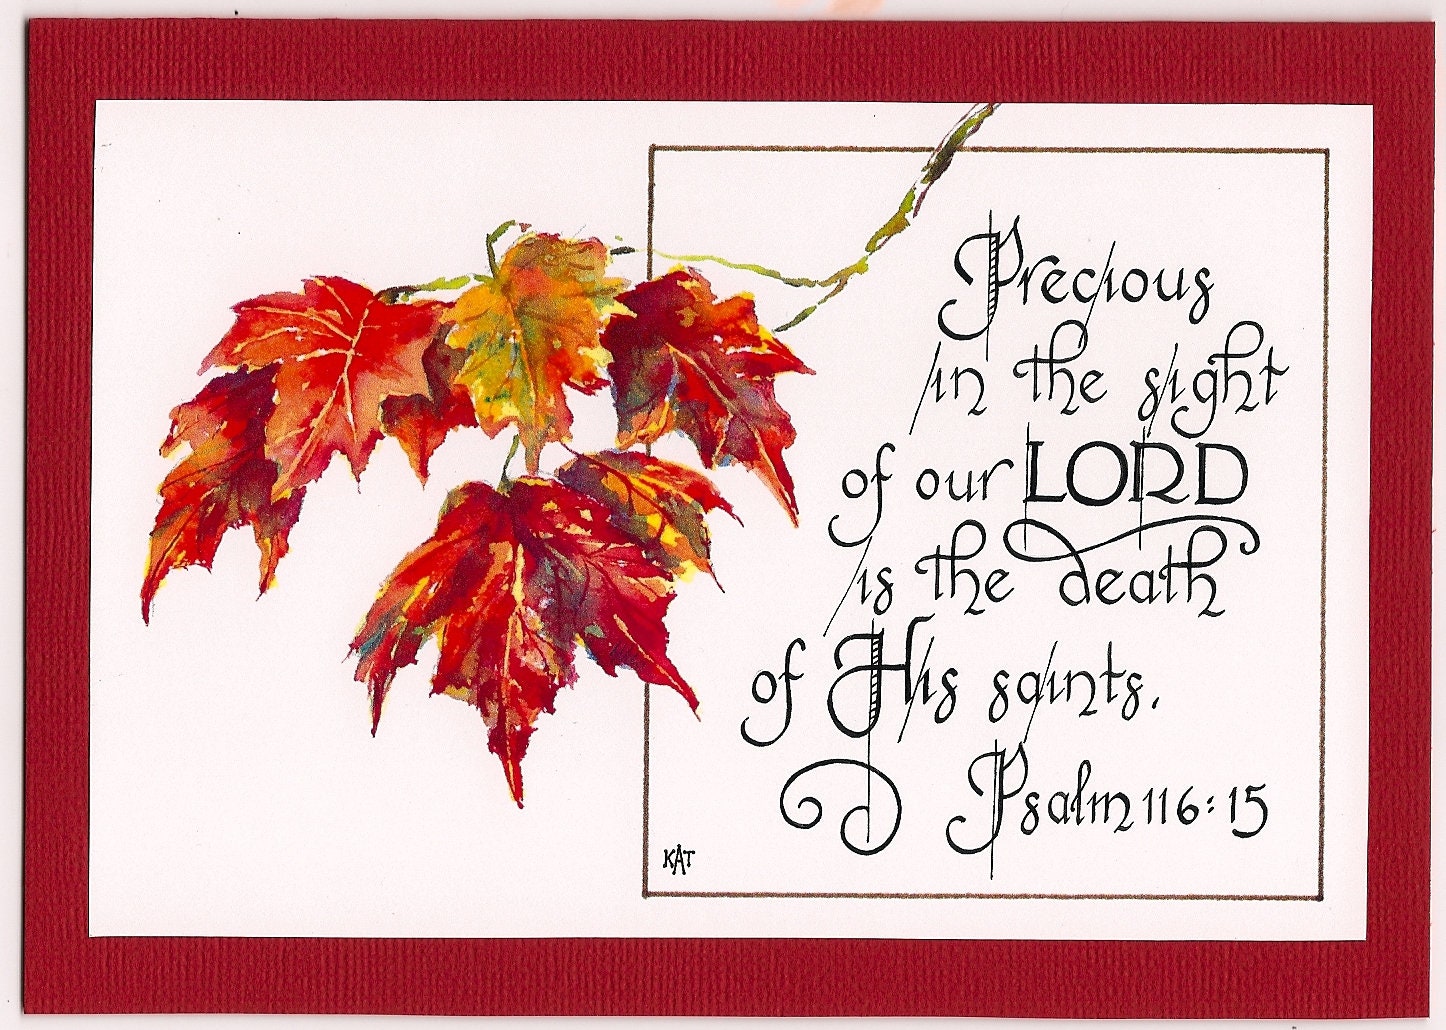 Precious
in the sight
of our LORD
is the death
of His saints.
Psalm 116:15
KAT